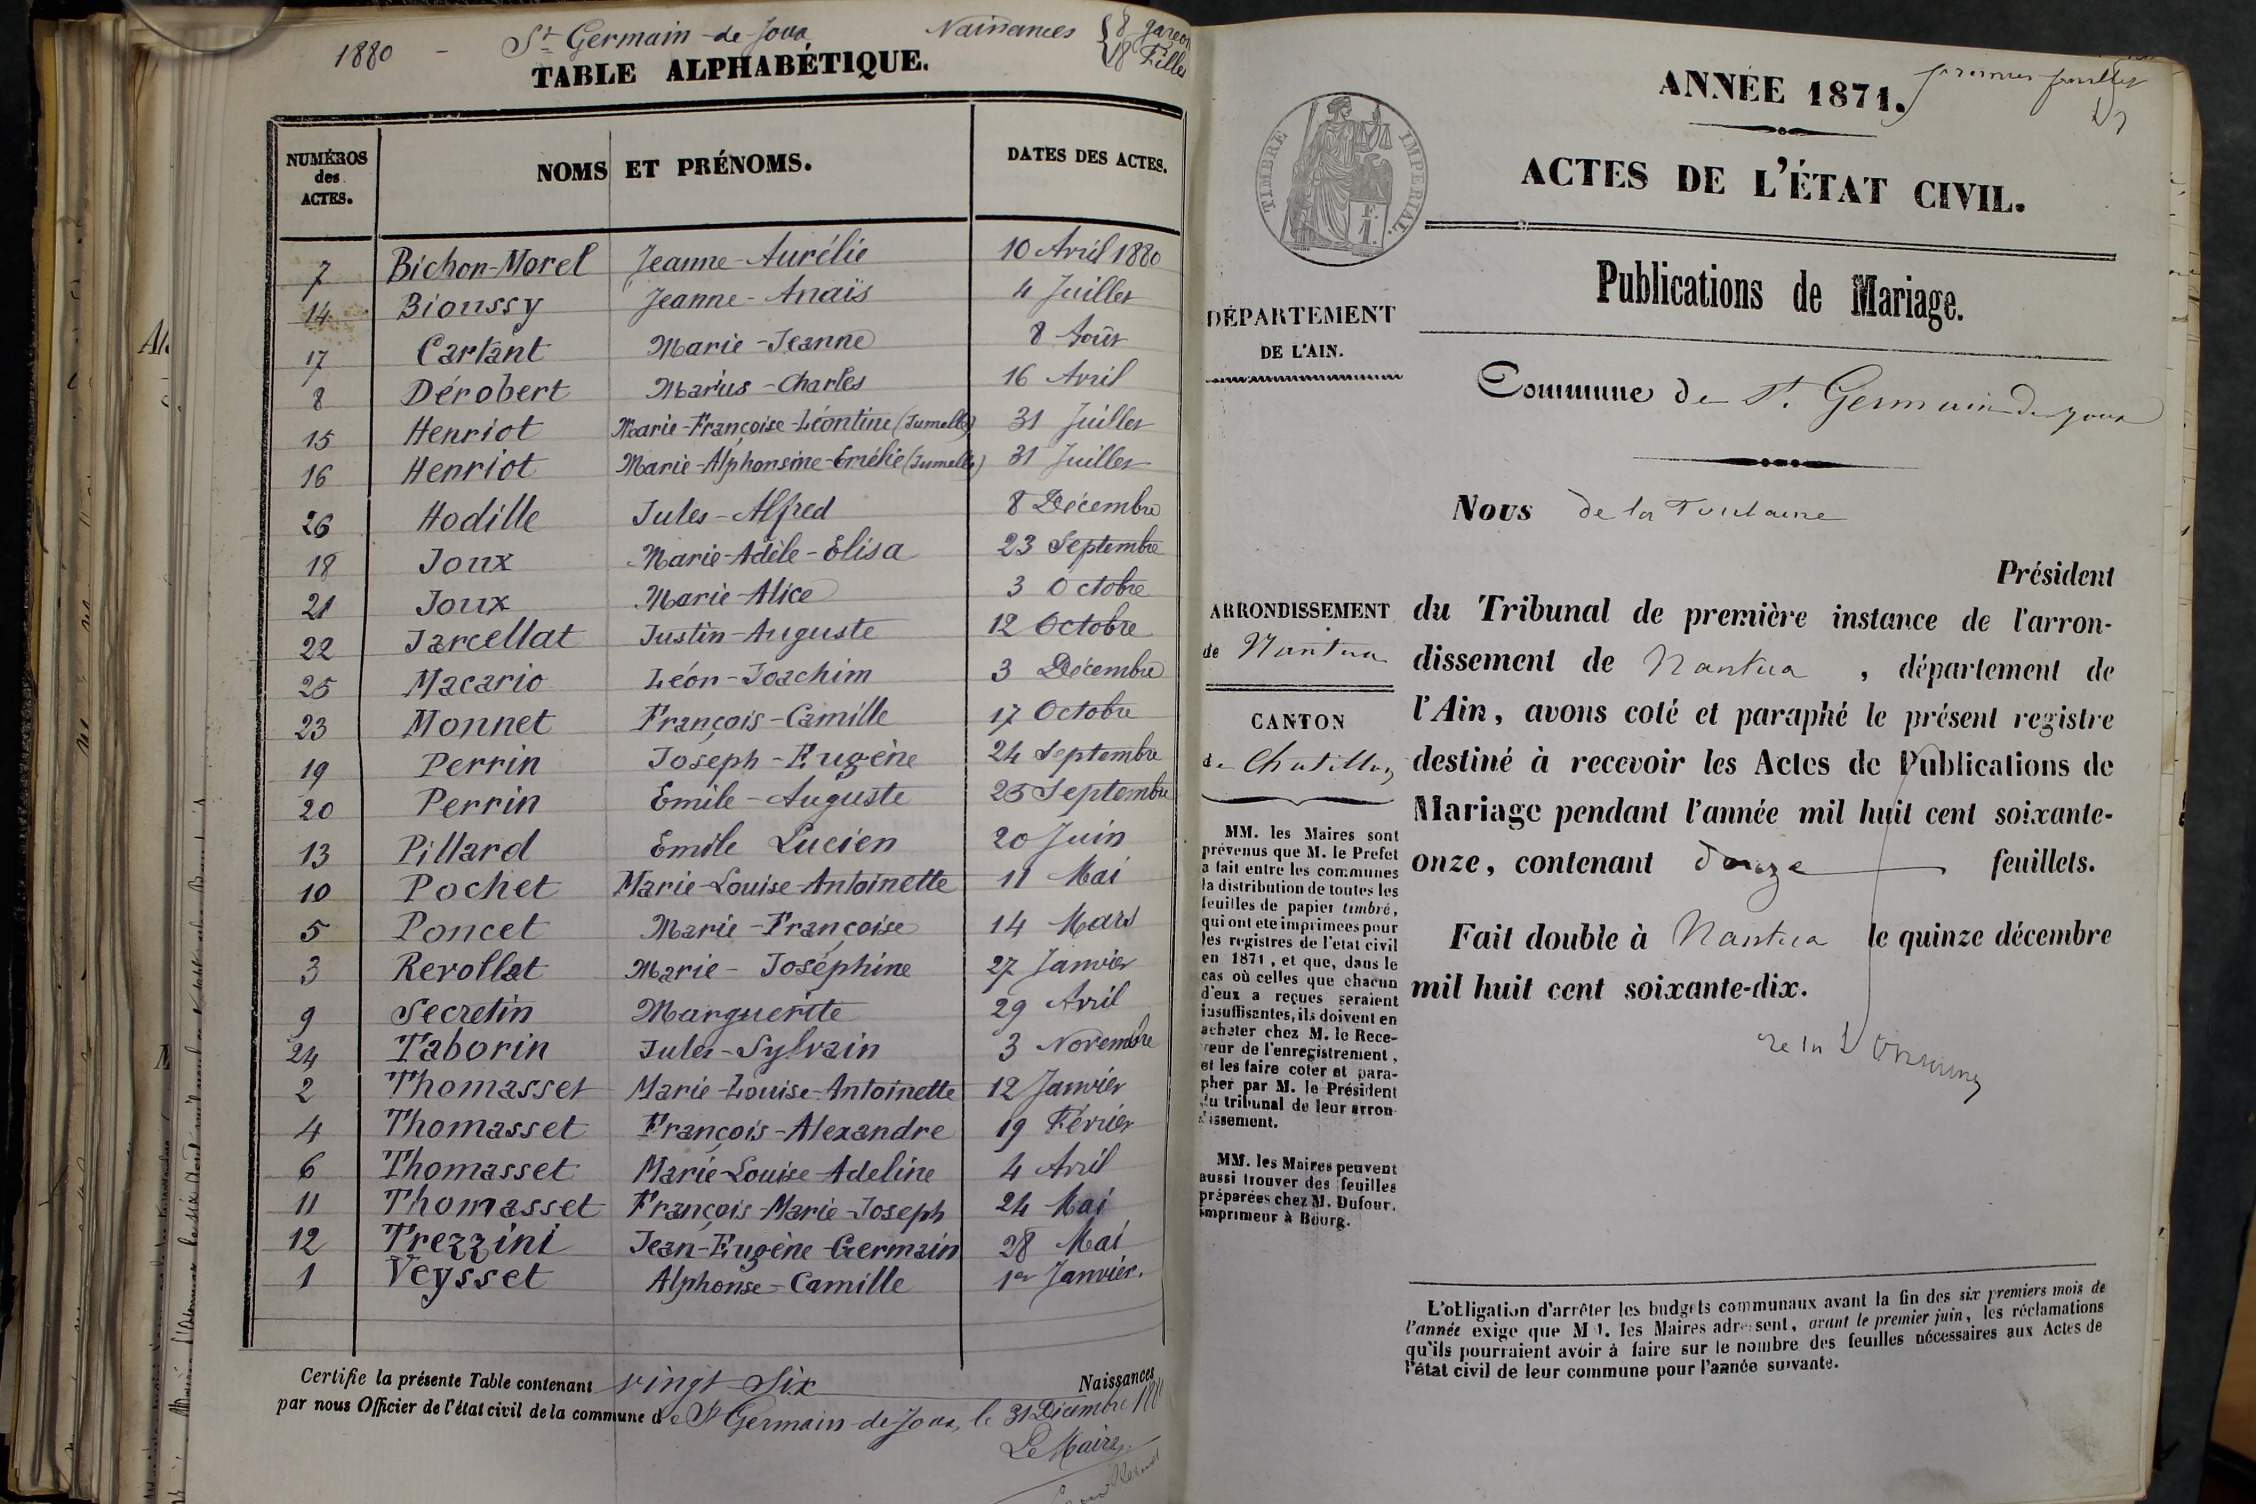 1880 - St Germain-de-Joux Naissances { 8 garçons
18 Filles
TABLE ALPHABÉTIQUE.
NUMÉROS des ACTES. NOMS ET PRÉNOMS. DATES DES ACTES.
7 Bichon-Morel Jeanne-Aurélie 10 Avril 1880
14 Bioussy Jeanne-Anaïs 4 Juillet
17 Cartant Marie-Jeanne 8 Août
8 Dérobert Marius-Charles 16 Avril
15 Henriot Marie-Françoise-Léontine (Jumelle) 31 Juillet
16 Henriot Marie-Alphonsine-Emélie (Jumelle) 31 Juillet
26 Hodille Jules-Alfred 8 Décembre
18 Joux Marie-Adèle-Elisa 23 Septembre
21 Joux Marie-Alice 3 Octobre
22 Jarcellat Justin-Auguste 12 Octobre
25 Macario Léon-Joachim 3 Décembre
23 Monnet François-Camille 17 Octobre
19 Perrin Joseph-Eugène 24 Septembre
20 Perrin Emile-Auguste 25 Septembre
13 Pillard Emile Lucien 20 Juin
10 Pochet Marie-Louise-Antoinette 11 Mai
5 Poncet Marie-Françoise 14 Mars
3 Revollat Marie-Joséphine 27 Janvier
9 Secretin Marguerite 29 Avril
24 Taborin Jules-Sylvain 3 Novembre
2 Thomasset Marie-Louise-Antoinette 12 Janvier
4 Thomasset François-Alexandre 19 Février
6 Thomasset Marie-Louise-Adeline 4 Avril
11 Thomasset François-Marie-Joseph 24 Mai
12 Trezzini Jean-Eugène-Germain 28 Mai
1 Veysset Alphonse-Camille 1er Janvier.
Certifie la présente Table contenant vingt-Six Naissances
par nous Officier de l'état civil de la commune de St Germain-de-Joux, le 31 Décembre
Le Maire,
premier feuillet
ANNÉE 1871.
TIMBRE IMPERIAL.
F.
1.
ACTES DE L'ÉTAT CIVIL.
Publications de Mariage.
DÉPARTEMENT
DE L'AIN.
Commune de St. Germain de joux
Nous de la
Président
ARRONDISSEMENT
de Nantua
CANTON
de Chatillon
du Tribunal de première instance de l'arron-
dissement de Nantua, département de
l'Ain, avons coté et paraphé le présent registre
destiné à recevoir les Actes de Publications de
Mariage pendant l'année mil huit cent soixante-
onze, contenant douze feuillets.
Fait double à Nantua le quinze décembre
mil huit cent soixante-dix.
MM. les Maires sont
prévenus que M. le Prefet
a fait entre les communes
la distribution de toutes les
feuilles de papier timbré,
qui ont ete imprimees pour
les registres de l'etat civil
en 1871, et que, dans le
cas où celles que chacun
d'eux a reçues seraient
insuffisantes, ils doivent en
acheter chez M. le Rece-
veur de l'enregistrement,
et les faire coter et para-
pher par M. le Président
du tribunal de leur arron-
dissement.
MM. les Maires peuvent
aussi trouver des feuilles
préparées chez M. Dufour,
imprimeur à Bourg.
L'obligation d'arrêter les budgets communaux avant la fin des six premiers mois de
l'année exige que MM. les Maires adressent, avant le premier juin, les réclamations
qu'ils pourraient avoir à faire sur le nombre des feuilles nécessaires aux Actes de
l'état civil de leur commune pour l'année suivante.